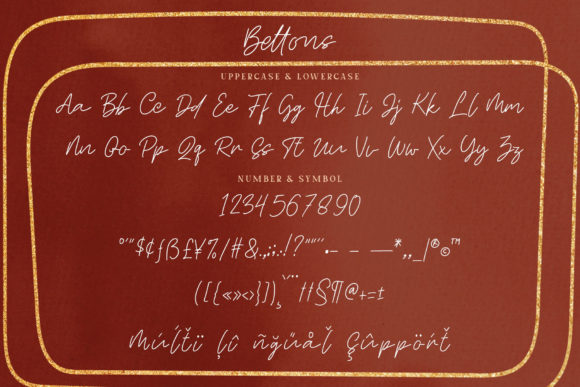 Bettons
UPPERCASE & LOWERCASE
Aa Bb Cc Dd Ee Ff Gg Hh Ii Jj Kk Ll Mm
Nn Oo Pp Qq Rr Ss Tt Uu Vv Ww Xx Yy Zz
NUMBER & SYMBOL
1234567890
°'"$¢ƒß£¥%/#&.,;:.·!?""''•- – —*,,_|®©™
([{«»‹›}])¸ˇ¨†‡§¶@+=±
Múĺťï ļû ñğűåľ Şûppöŕť